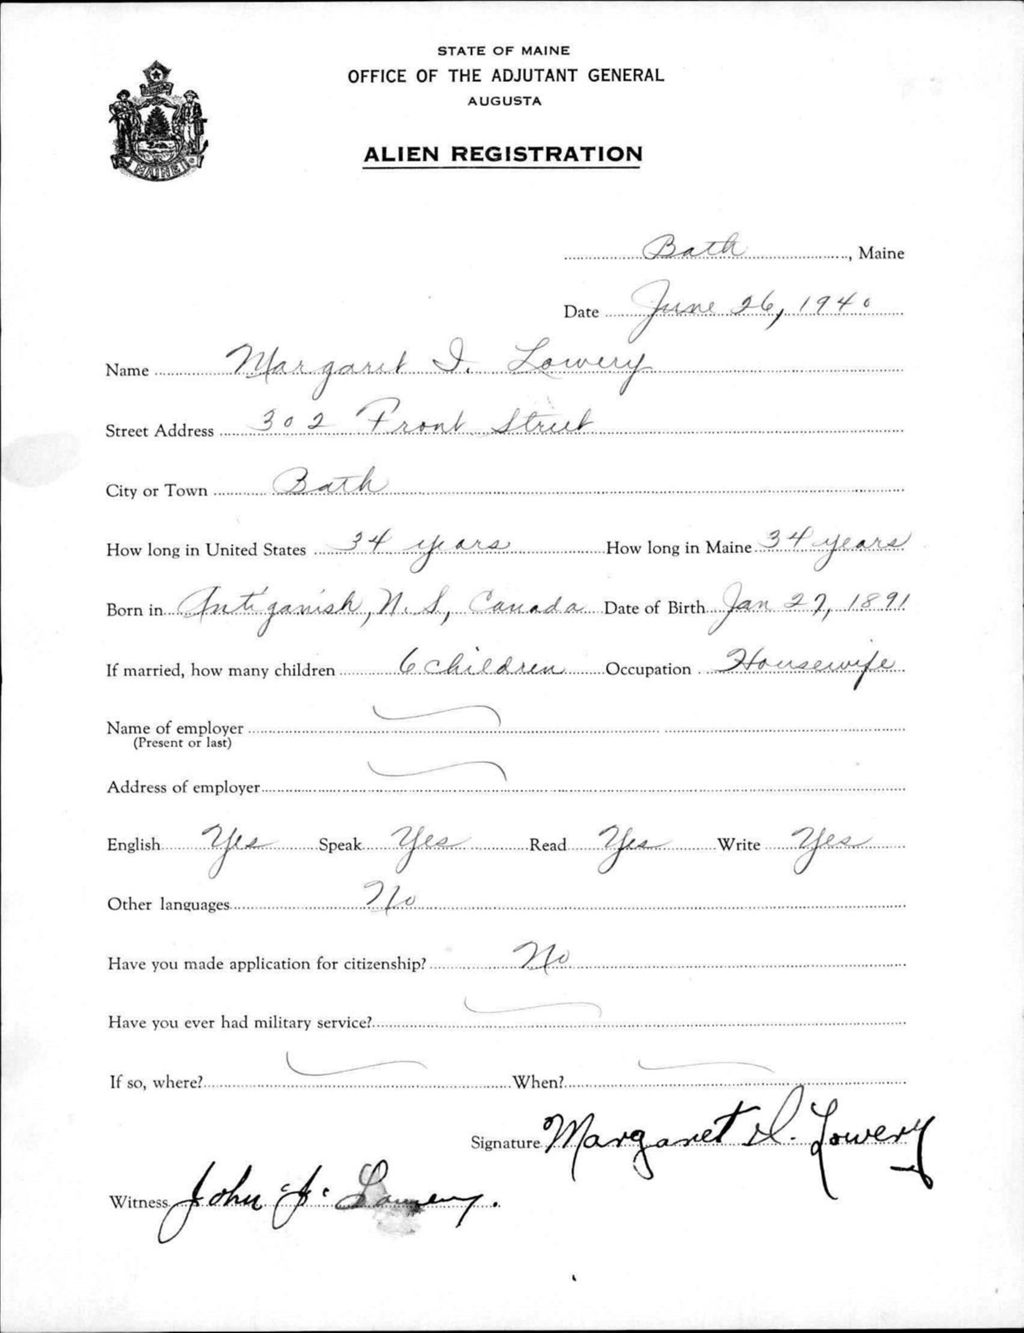 STATE OF MAINE
OFFICE OF THE ADJUTANT GENERAL
AUGUSTA
ALIEN REGISTRATION
MAINE
Bath, Maine
Date June 26, 1940
Name Margaret I. Lowery
Street Address 302 Front Street
City or Town Bath
How long in United States 34 years How long in Maine 34 years
Born in Antiganish, N.S, Canada Date of Birth Jan 27, 1891
If married, how many children 6 children Occupation Housewife
Name of employer
(Present or last)
Address of employer
English Yes Speak Yes Read Yes Write Yes
Other languages No
Have you made application for citizenship? No
Have you ever had military service?
If so, where? When?
Signature Margaret I. Lowery
Witness John J. Lowery.